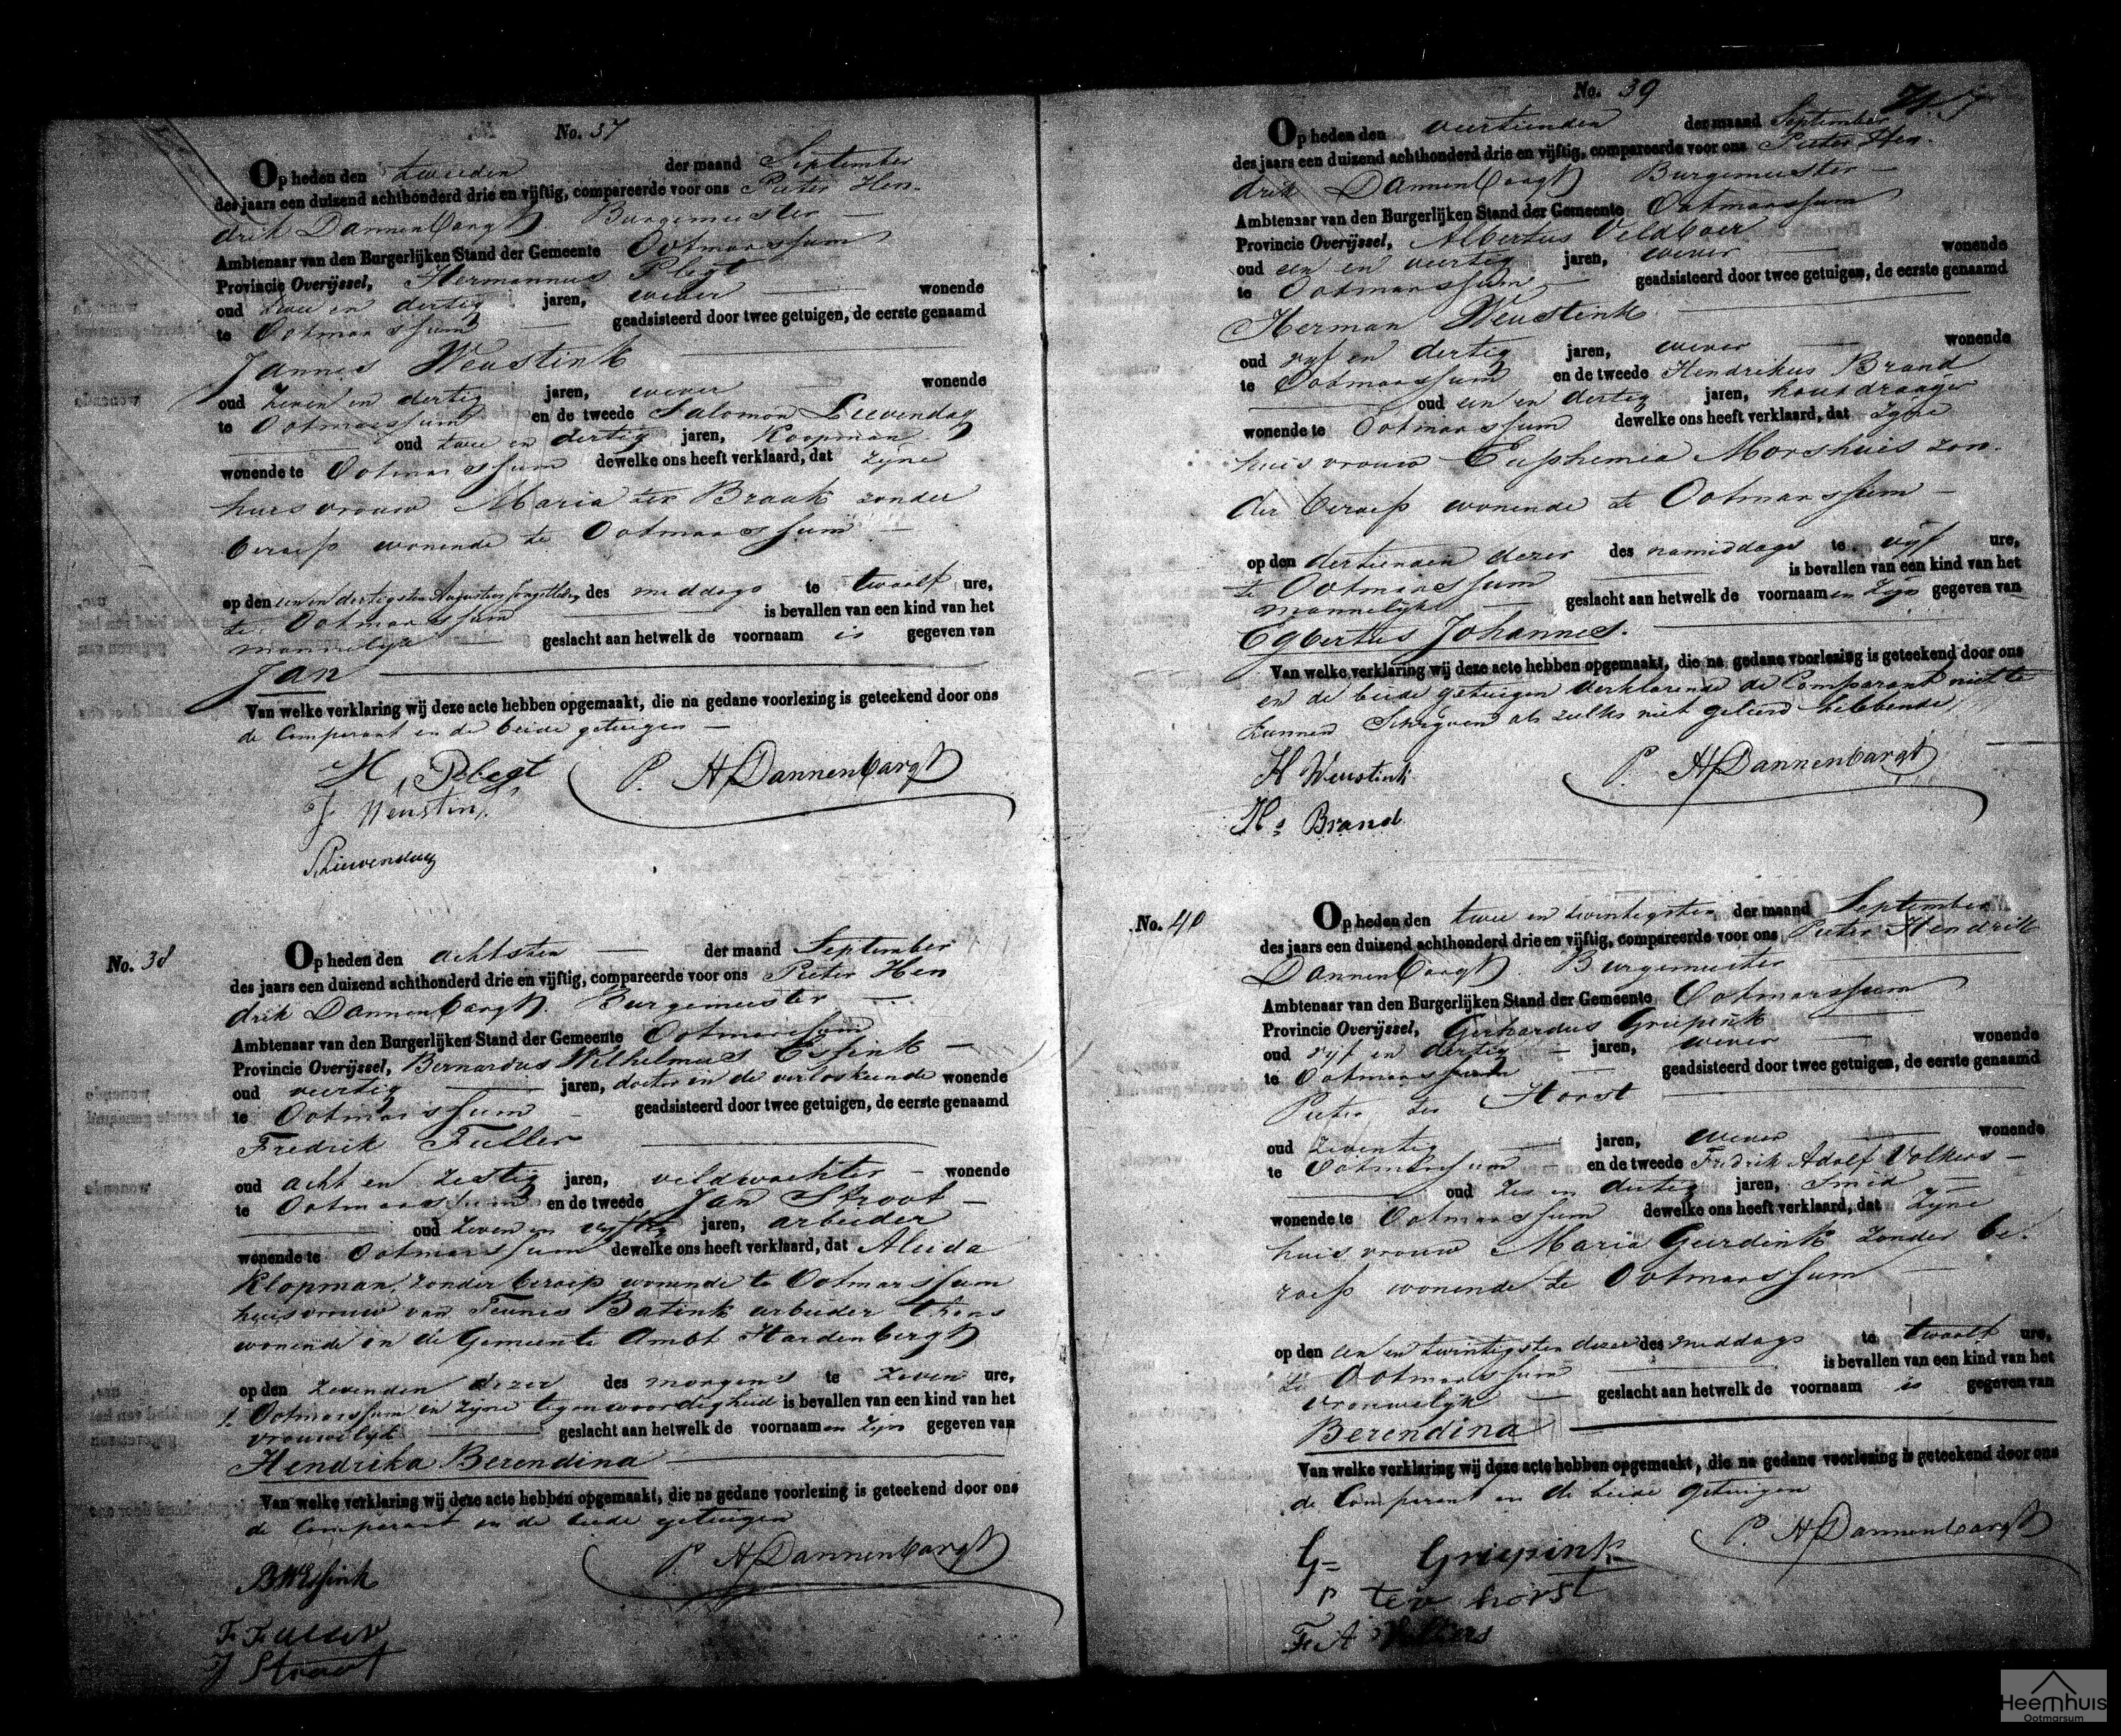 No. 37
Op heden den tweeden der maand September
des jaars een duizend achthonderd drie en vijftig, compareerde voor ons Pieter Hen-
drik Dannenbargh Burgemeester
Ambtenaar van den Burgerlijken Stand der Gemeente Ootmarssum
Provincie Overijssel, Hermannus Plegt
oud twee en dertig jaren, wever wonende
te Ootmarssum geadsisteerd door twee getuigen, de eerste genaamd
Jannes Weustink
oud zeven en dertig jaren, wever wonende
te Ootmarssum en de tweede Salomon Lievendag
oud twee en dertig jaren, Koopman
wonende te Ootmarssum dewelke ons heeft verklaard, dat zyne
huisvrouw Maria ter Braak zonder
beroep wonende te Ootmarssum
op den een en dertigsten Augustus jongstleden des middags te twaalf ure,
te Ootmarssum is bevallen van een kind van het
mannelijk geslacht aan hetwelk de voornaam is gegeven van
Jan
Van welke verklaring wij deze acte hebben opgemaakt, die na gedane voorlezing is geteekend door ons
de Comparant en de beide getuigen
H, Plegt P. H Dannenbargh
J Weustink
No. 38
Op heden den achtsten der maand September
des jaars een duizend achthonderd drie en vijftig, compareerde voor ons Pieter Hen
drik Dannenbargh. Burgemeester
Ambtenaar van den Burgerlijken Stand der Gemeente Ootmarssum
Provincie Overijssel, Bernardus Wilhelmus Essink
oud veertig jaren, doctor in de verloskunde wonende
te Ootmarssum geadsisteerd door twee getuigen, de eerste genaamd
Fredrik Fuller
oud acht en zestig jaren, veldwachter wonende
te Ootmarssum en de tweede Jan Stroot
oud zeven en vyftig jaren, arbeider
wonende te Ootmarssum dewelke ons heeft verklaard, dat Aleida
Klopman, zonder beroep wonende te Ootmarssum
huisvrouw van Teunis Batink arbeider thans
wonende in de Gemeente Ambt Hardenbergh
op den zevenden dezer des morgens te zeven ure,
te Ootmarssum in zyne tegenwoordigheid is bevallen van een kind van het
vrouwelijk geslacht aan hetwelk de voornaamen zijn gegeven van
Hendrika Berendina
Van welke verklaring wij deze acte hebben opgemaakt, die na gedane voorlezing is geteekend door ons
de Comparant en de beide getuigen
BWEssink P. H Dannenbargh
F Fuller
J Stroot
No. 39
Op heden den veertienden der maand September
des jaars een duizend achthonderd drie en vijftig, compareerde voor ons Pieter Hen-
drik Dannenbargh Burgemeester
Ambtenaar van den Burgerlijken Stand der Gemeente Ootmarssum
Provincie Overijssel, Albertus Veldboer
oud een en veertig jaren, wever wonende
te Ootmarssum geadsisteerd door twee getuigen, de eerste genaamd
Herman Weustink
oud vyf en dertig jaren, wever wonende
te Ootmarssum en de tweede Hendrikus Brand
oud een en dertig jaren, houtdraager
wonende te Ootmarssum dewelke ons heeft verklaard, dat zyne
huisvrouw Euphemia Morshuis zon-
der beroep wonende te Ootmarssum
op den dertienden dezer des namiddags te vijf ure,
te Ootmarssum is bevallen van een kind van het
mannelijk geslacht aan hetwelk de voornaamen zijn gegeven van
Egbertus Johannes.
Van welke verklaring wij deze acte hebben opgemaakt, die na gedane voorlezing is geteekend door ons
en de beide getuigen verklarende de Comparant niet te
kunnen Schryven als zulks niet geleerd hebbende
H Weustink P. H Dannenbargh
Hs Brand
No. 40
Op heden den twee en twintigsten der maand September
des jaars een duizend achthonderd drie en vijftig, compareerde voor ons Pieter Hendrik
Dannenbargh Burgemeester
Ambtenaar van den Burgerlijken Stand der Gemeente Ootmarssum
Provincie Overijssel, Gerhardus Griepink
oud vyf en dertig jaren, wever wonende
te Ootmarssum geadsisteerd door twee getuigen, de eerste genaamd
Pieter ter Horst
oud zeventig jaren, wever wonende
te Ootmarssum en de tweede Fredrik Adolf Volkers
oud zes en dertig jaren, Smid
wonende te Ootmarssum dewelke ons heeft verklaard, dat zyne
huisvrouw Maria Geerdink zonder be-
roep wonende te Ootmarssum
op den een en twintigsten dezer des middags te twaalf ure,
te Ootmarssum is bevallen van een kind van het
vrouwelijk geslacht aan hetwelk de voornaam is gegeven van
Berendina
Van welke verklaring wij deze acte hebben opgemaakt, die na gedane voorlezing is geteekend door ons
de Comparant en de beide getuigen
G= Griepink P. H Dannenbargh
P ter horst
F A Volkers
Heemhuis
Ootmarsum